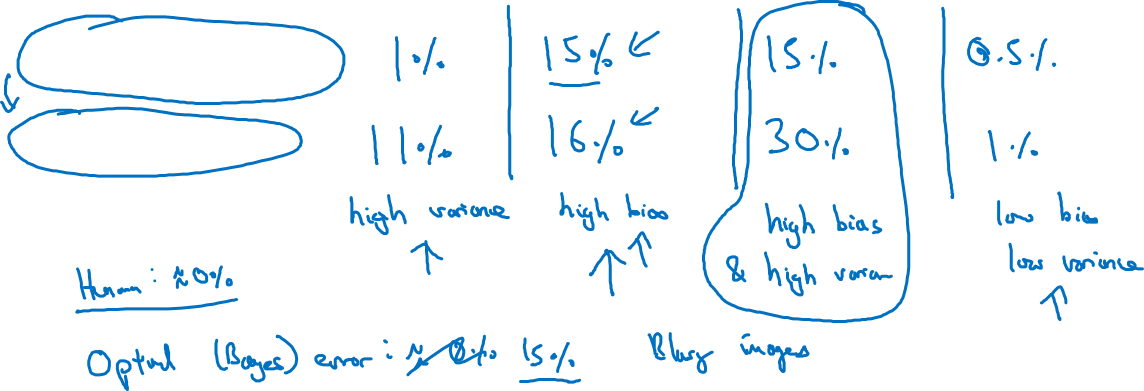 1% 15% 15% 0.5%
11% 16% 30% 1%
high variance high bias high bias low bias
& high varian low variance
Human: ≈0%
Optimal (Bayes) error: ≈ 0% 15% Blurry images